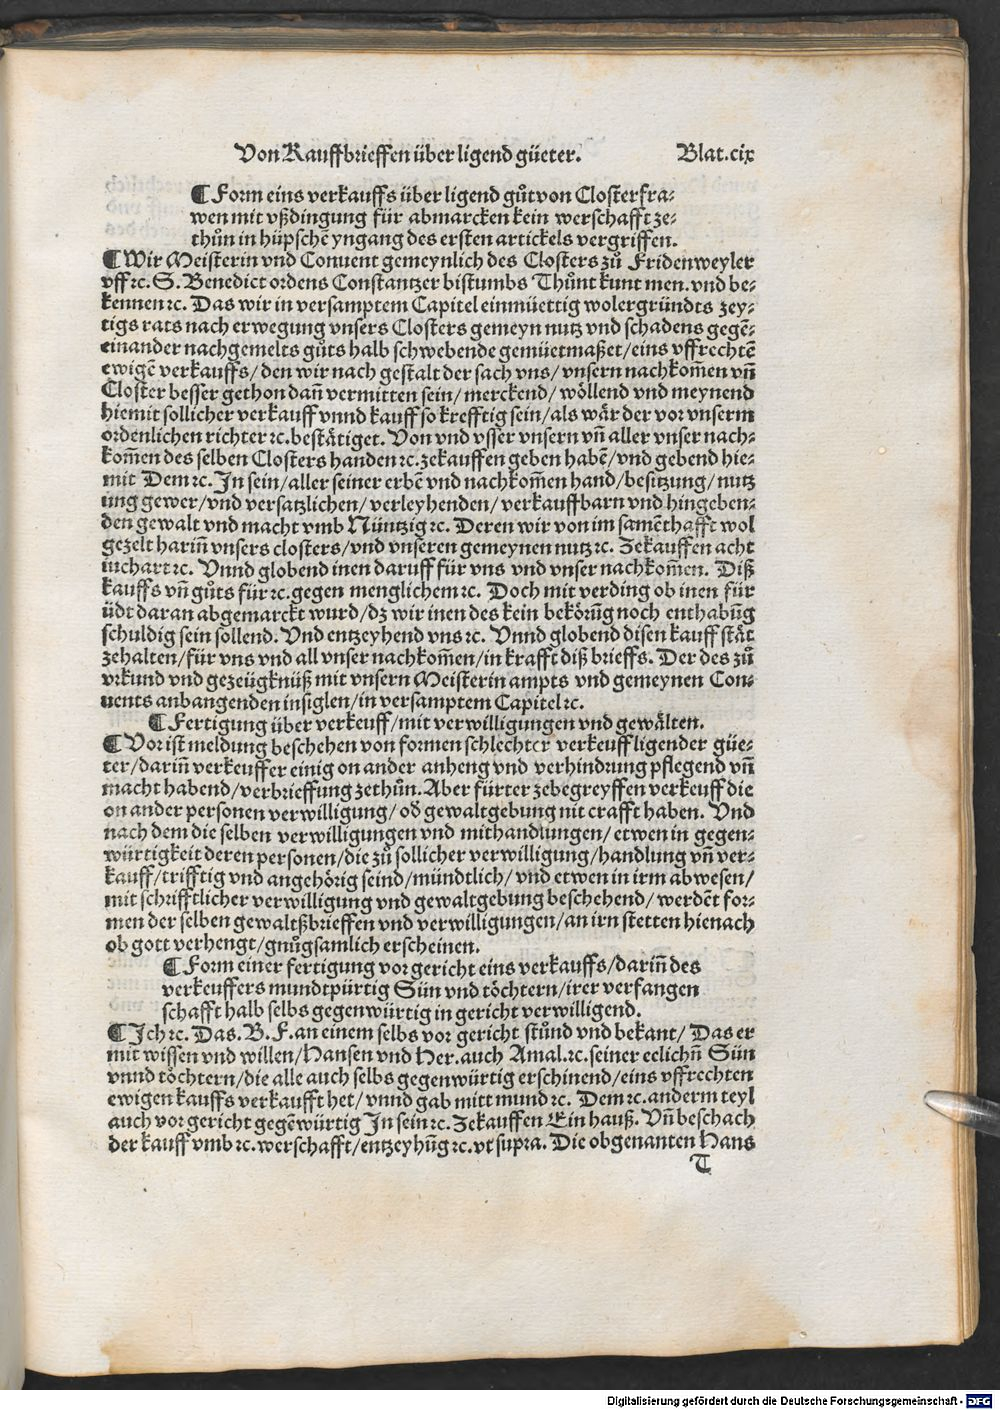 Von Kauffbrieffen über ligend güeter. Blat.cix
¶ Form eins verkauffs über ligend gůt von Closterfra⸗
wen mit vßdingung für abmarcken kein werschafft ze⸗
thůn in hüpschē yngang des ersten artickels vergriffen.
¶ Wir Meisterin vnd Conuent gemeynlich des Closters zů Fridenweyler
vff ꝛc. S. Benedict ordens Constantzer bistumbs Thůnt kunt men. vnd be⸗
kennen ꝛc. Das wir in versamptem Capitel einmüettig wolergründts zey⸗
tigs rats nach erwegung vnsers Closters gemeyn nutz vnd schadens gegē⸗
einander nachgemelts gůts halb schwebende gemüetmaßet/eins vffrechtē
ewigē verkauffs/den wir nach gestalt der sach vns/vnsern nachkom̄en vn̄
Closter besser gethon dan̄ vermitten sein/merckend/wöllend vnd meynend
hiemit sollicher verkauff vnnd kauff so krefftig sein/als wår der vor vnserm
ordenlichen richter ꝛc. bestätiget. Von vnd vsser vnsern vn̄ aller vnser nach⸗
kom̄en des selben Closters handen ꝛc. zekauffen geben habē/vnd gebend hie⸗
mit Dem ꝛc. In sein/aller seiner erbē vnd nachkom̄en hand/besitzung/nutz
ung gewer/vnd versatzlichen/verleyhenden/verkauffbarn vnd hingeben⸗
den gewalt vnd macht vmb Nüntzig ꝛc. Deren wir von im samēthafft wol
gezelt harin̄ vnsers closters/vnd vnseren gemeynen nutz ꝛc. Zekauffen acht
iuchart ꝛc. Vnnd globend inen daruff für vns vnd vnser nachkom̄en. Diß
kauffs vn̄ gůts für ꝛc. gegen menglichem ꝛc. Doch mit verding ob inen für
üdt daran abgemarckt wurd/dz wir inen des kein bekörūg noch enthabūg
schuldig sein sollend. Vnd entzeyhend vns ꝛc. Vnnd globend disen kauff stät
zehalten/für vns vnd all vnser nachkom̄en/in krafft diß brieffs. Der des zů
vrkund vnd gezeügknüß mit vnsern Meisterin ampts vnd gemeynen Con⸗
uents anhangenden insiglen/in versamptem Capitel ꝛc.
¶ Fertigung über verkeuff/mit verwilligungen vnd gewälten.
¶ Vor ist meldung beschehen von formen schlechter verkeuff ligender güe⸗
ter/darin̄ verkeuffer einig on ander anheng vnd verhindrung pflegend vn̄
macht habend/verbrieffung zethůn. Aber fürter zebegreyffen verkeuff die
on ander personen verwilligung/od̄ gewaltgebung nit crafft haben. Vnd
nach dem die selben verwilligungen vnd mithandlungen/etwen in gegen⸗
würtigkeit deren personen/die zů sollicher verwilligung/handlung vn̄ ver⸗
kauff/trifftig vnd angehörig seind/mündtlich/vnd etwen in irm abwesen/
mit schrifftlicher verwilligung vnd gewaltgebung beschehend/werdēt for⸗
men der selben gewaltßbrieffen vnd verwilligungen/an irn stetten hienach
ob gott verhengt/gnůgsamlich erscheinen.
¶ Form einer fertigung vor gericht eins verkauffs/darin̄ des
verkeuffers mundtpürtig Sün vnd töchtern/irer verfangen
schafft halb selbs gegenwürtig in gericht verwilligend.
¶ Ich ꝛc. Das. B. F. an einem selbs vor gericht stůnd vnd bekant/Das er
mit wissen vnd willen/Hansen vnd Her. auch Amal. ꝛc. seiner eelichn̄ Sün
vnnd töchtern/die alle auch selbs gegenwürtig erschinend/eins vffrechten
ewigen kauffs verkaufft het/vnnd gab mitt mund ꝛc. Dem ꝛc. anderm teyl
auch vor gericht gegēwürtig In sein ꝛc. Zekauffen Ein hauß. Vn̄ beschach
der kauff vmb ꝛc. werschafft/entzeyhūg ꝛc. vt supra. Die obgenanten Hans
T
Digitalisierung gefördert durch die Deutsche Forschungsgemeinschaft - DFG